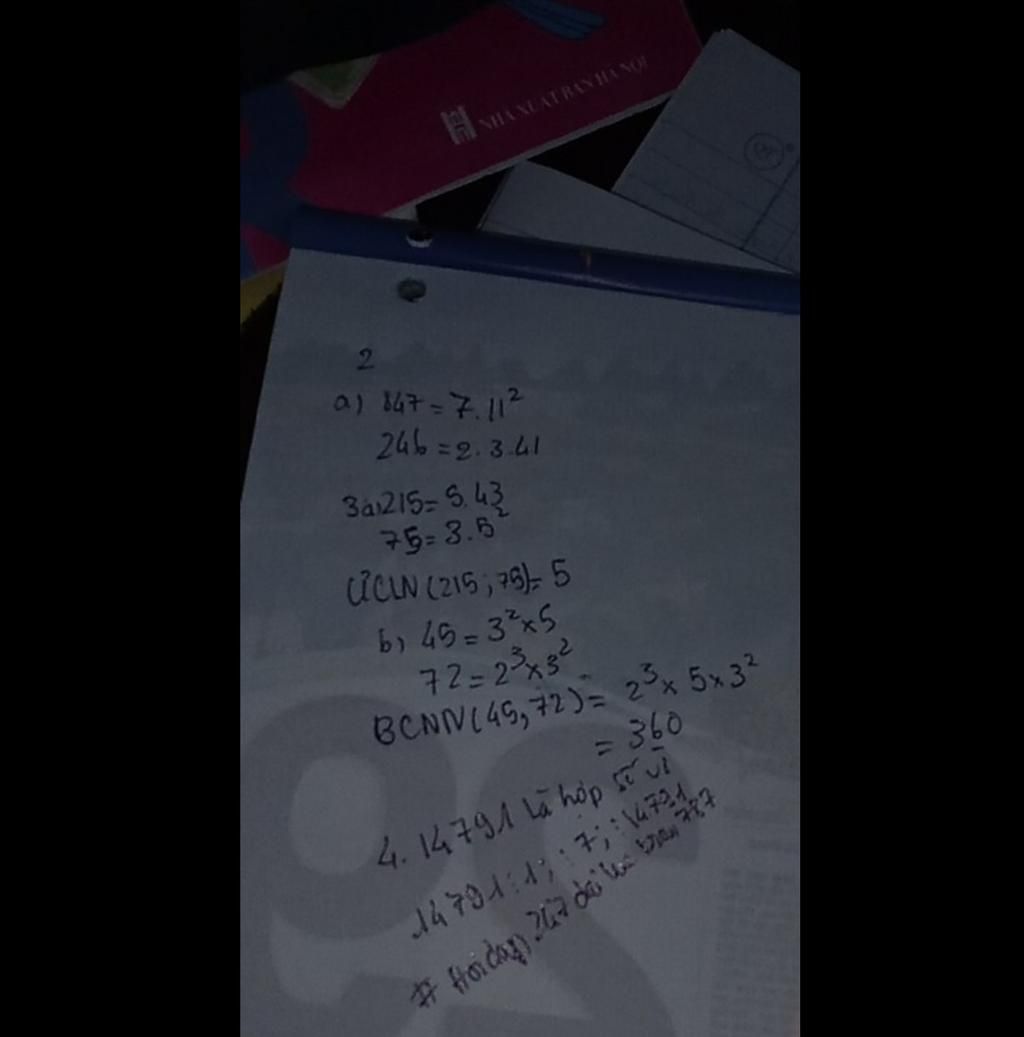 NHÀ XUẤT BẢN HÀ NỘI
2
a) 847 = 7.11²
246 = 2.3.41
3a) 215 = 5.43
75 = 3.5²
ƯCLN (215; 75) = 5
b) 45 = 3² x 5
72 = 2³ x 3²
BCNN (45, 72) = 2³ x 5 x 3²
= 360
4. 14791 là hợp số vì
14791 : 1; : 7; : 14791
# Hoidap247